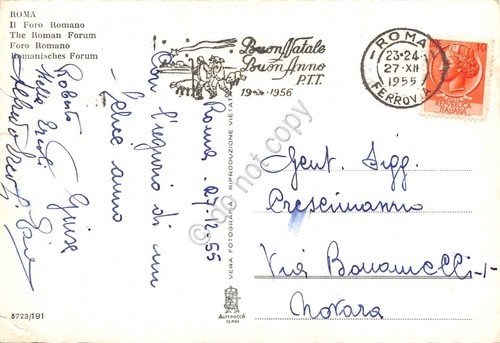 ROMA
Il Foro Romano
The Roman Forum
Foro Romano
Romanisches Forum
Buon Natale
Buon Anno
P.T.T.
1955 1956
ROMA
23-24
27·XII
1955
FERROVIA
10
REPUBBLICA
ITALIANA
Roma 27-12-55
Con l'augurio di un
felice anno
Roberto
Gent. Sigg.
Prescimanno
Via Bonomelli-1-
Novara
VERA FOTOGRAFIA - RIPRODUZIONE VIETATA
do not copy
ALTEROCCA
TERNI
5723/191